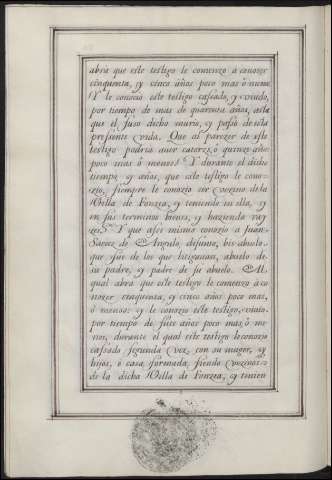 abra que este testigo le comenzo à conozer
cinquenta, y cinco años poco mas ó menos
Y le conoció este testigo cassado, y viudo,
por tiempo de mas de quarenta años, asta
que el suso dicho murio, y passó desta
presente vida. Que al parezer de este
testigo podria auer catorze, ò quinze años
poco mas ò menos. Y durante el dicho
tiempo, y años, que este testigo le cono-
zio, siempre le conozio ser vezino de la
Villa de Fonzea, y teniendo en ella, y
en sus terminos bienes, y haziendo ray
zes. Y que assi mismo conozio a Juan
Saenz de Angulo, difunto, bis abuelo
que fue de los que litiganuan, abuelo de
su padre, y padre de su abuelo. Al
qual abra que este testigo le comenzo à co
nozer cinquenta, y cinco años poco mas,
ò menos: y le conozio este testigo, viuio
por tiempo de siete años poco mas, ò me
nos, durante el qual este testigo le conozio
cassado segunda vez, con su muger, y
hijos, ò casa formada, siendo vezinos
de la dicha Villa de Fonzea, y tenien